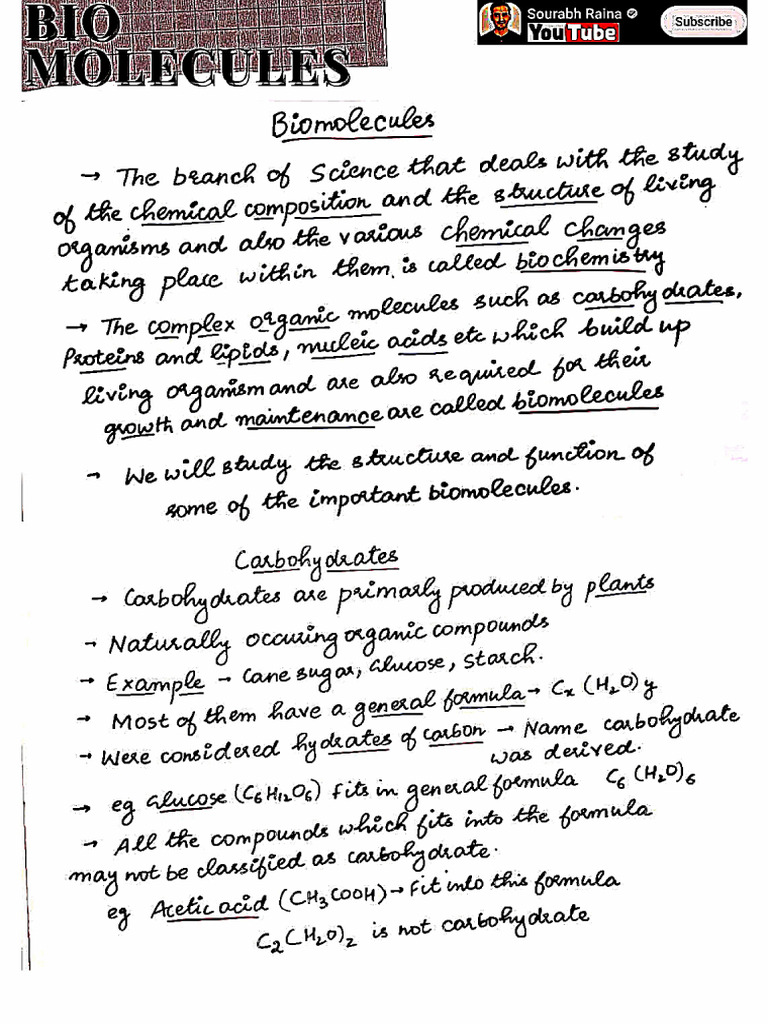 BIO
MOLECULES
Sourabh Raina
YouTube
Subscribe
Biomolecules
→ The branch of Science that deals with the study
of the chemical composition and the structure of living
organisms and also the various chemical changes
taking place within them, is called biochemistry
→ The complex organic molecules such as carbohydrates,
Proteins and lipids, nucleic acids etc which build up
living organism and are also required for their
growth and maintenance are called biomolecules
→ We will study the structure and function of
some of the important biomolecules.
Carbohydrates
→ Carbohydrates are primarly produced by plants
→ Naturally occuring organic compounds
→ Example → Cane sugar, Glucose, Starch.
→ Most of them have a general formula → Cx (H2O) y
→ Were considered hydrates of carbon → Name carbohydrate
was derived.
→ eg Glucose (C6H12O6) Fits in general formula C6 (H2O)6
→ All the compounds which fits into the formula
may not be classified as carbohydrate.
eg Acetic acid (CH3COOH) → Fit into this formula
C2(H2O)2 is not carbohydrate